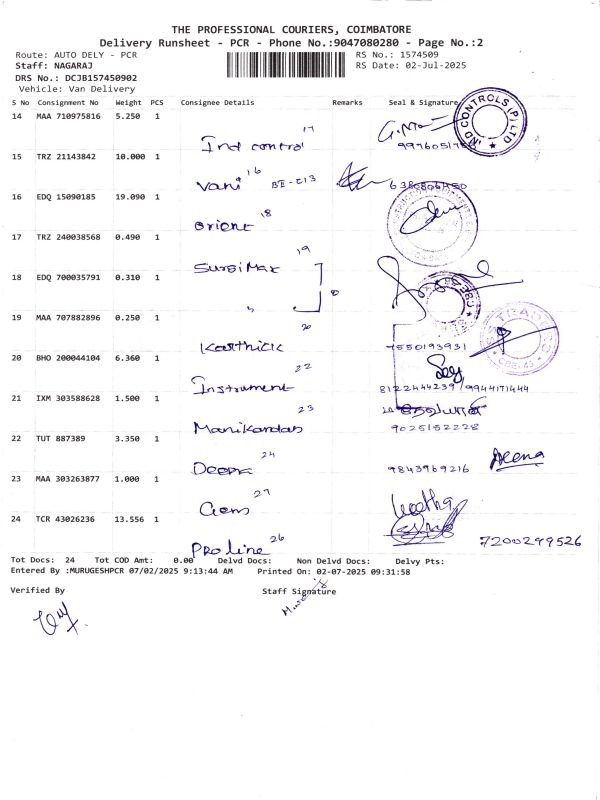 THE PROFESSIONAL COURIERS, COIMBATORE
Delivery Runsheet - PCR - Phone No.:9047080280 - Page No.:2
Route: AUTO DELY - PCR RS No.: 1574509
Staff: NAGARAJ RS Date: 02-Jul-2025
DRS No.: DCJB157450902
Vehicle: Van Delivery
S No Consignment No Weight PCS Consignee Details Remarks Seal & Signature
14 MAA 710975816 5.250 1
17
Ind control
IND CONTROLS (P) LTD
15 TRZ 21143842 10.000 1
16
Vani BE-213
16 EDQ 15090185 19.090 1
18
Orient
17 TRZ 240038568 0.490 1
19
SurgiMax
18 EDQ 700035791 0.310 1
"
19 MAA 707882896 0.250 1
20
Karthick 7550193931
20 BHO 200044104 6.360 1
22
Instrument 8122444239/9944171444
21 IXM 303588628 1.500 1
23
Manikandas 9025152228
22 TUT 887389 3.350 1
24
Deepa 9843969216 Meena
23 MAA 303263877 1.000 1
27
Gem Geetha
24 TCR 43026236 13.556 1
26
Proline 7200299526
Tot Docs: 24 Tot COD Amt: 0.00 Delvd Docs: Non Delvd Docs: Delvy Pts:
Entered By :MURUGESHPCR 07/02/2025 9:13:44 AM Printed On: 02-07-2025 09:31:58
Verified By Staff Signature